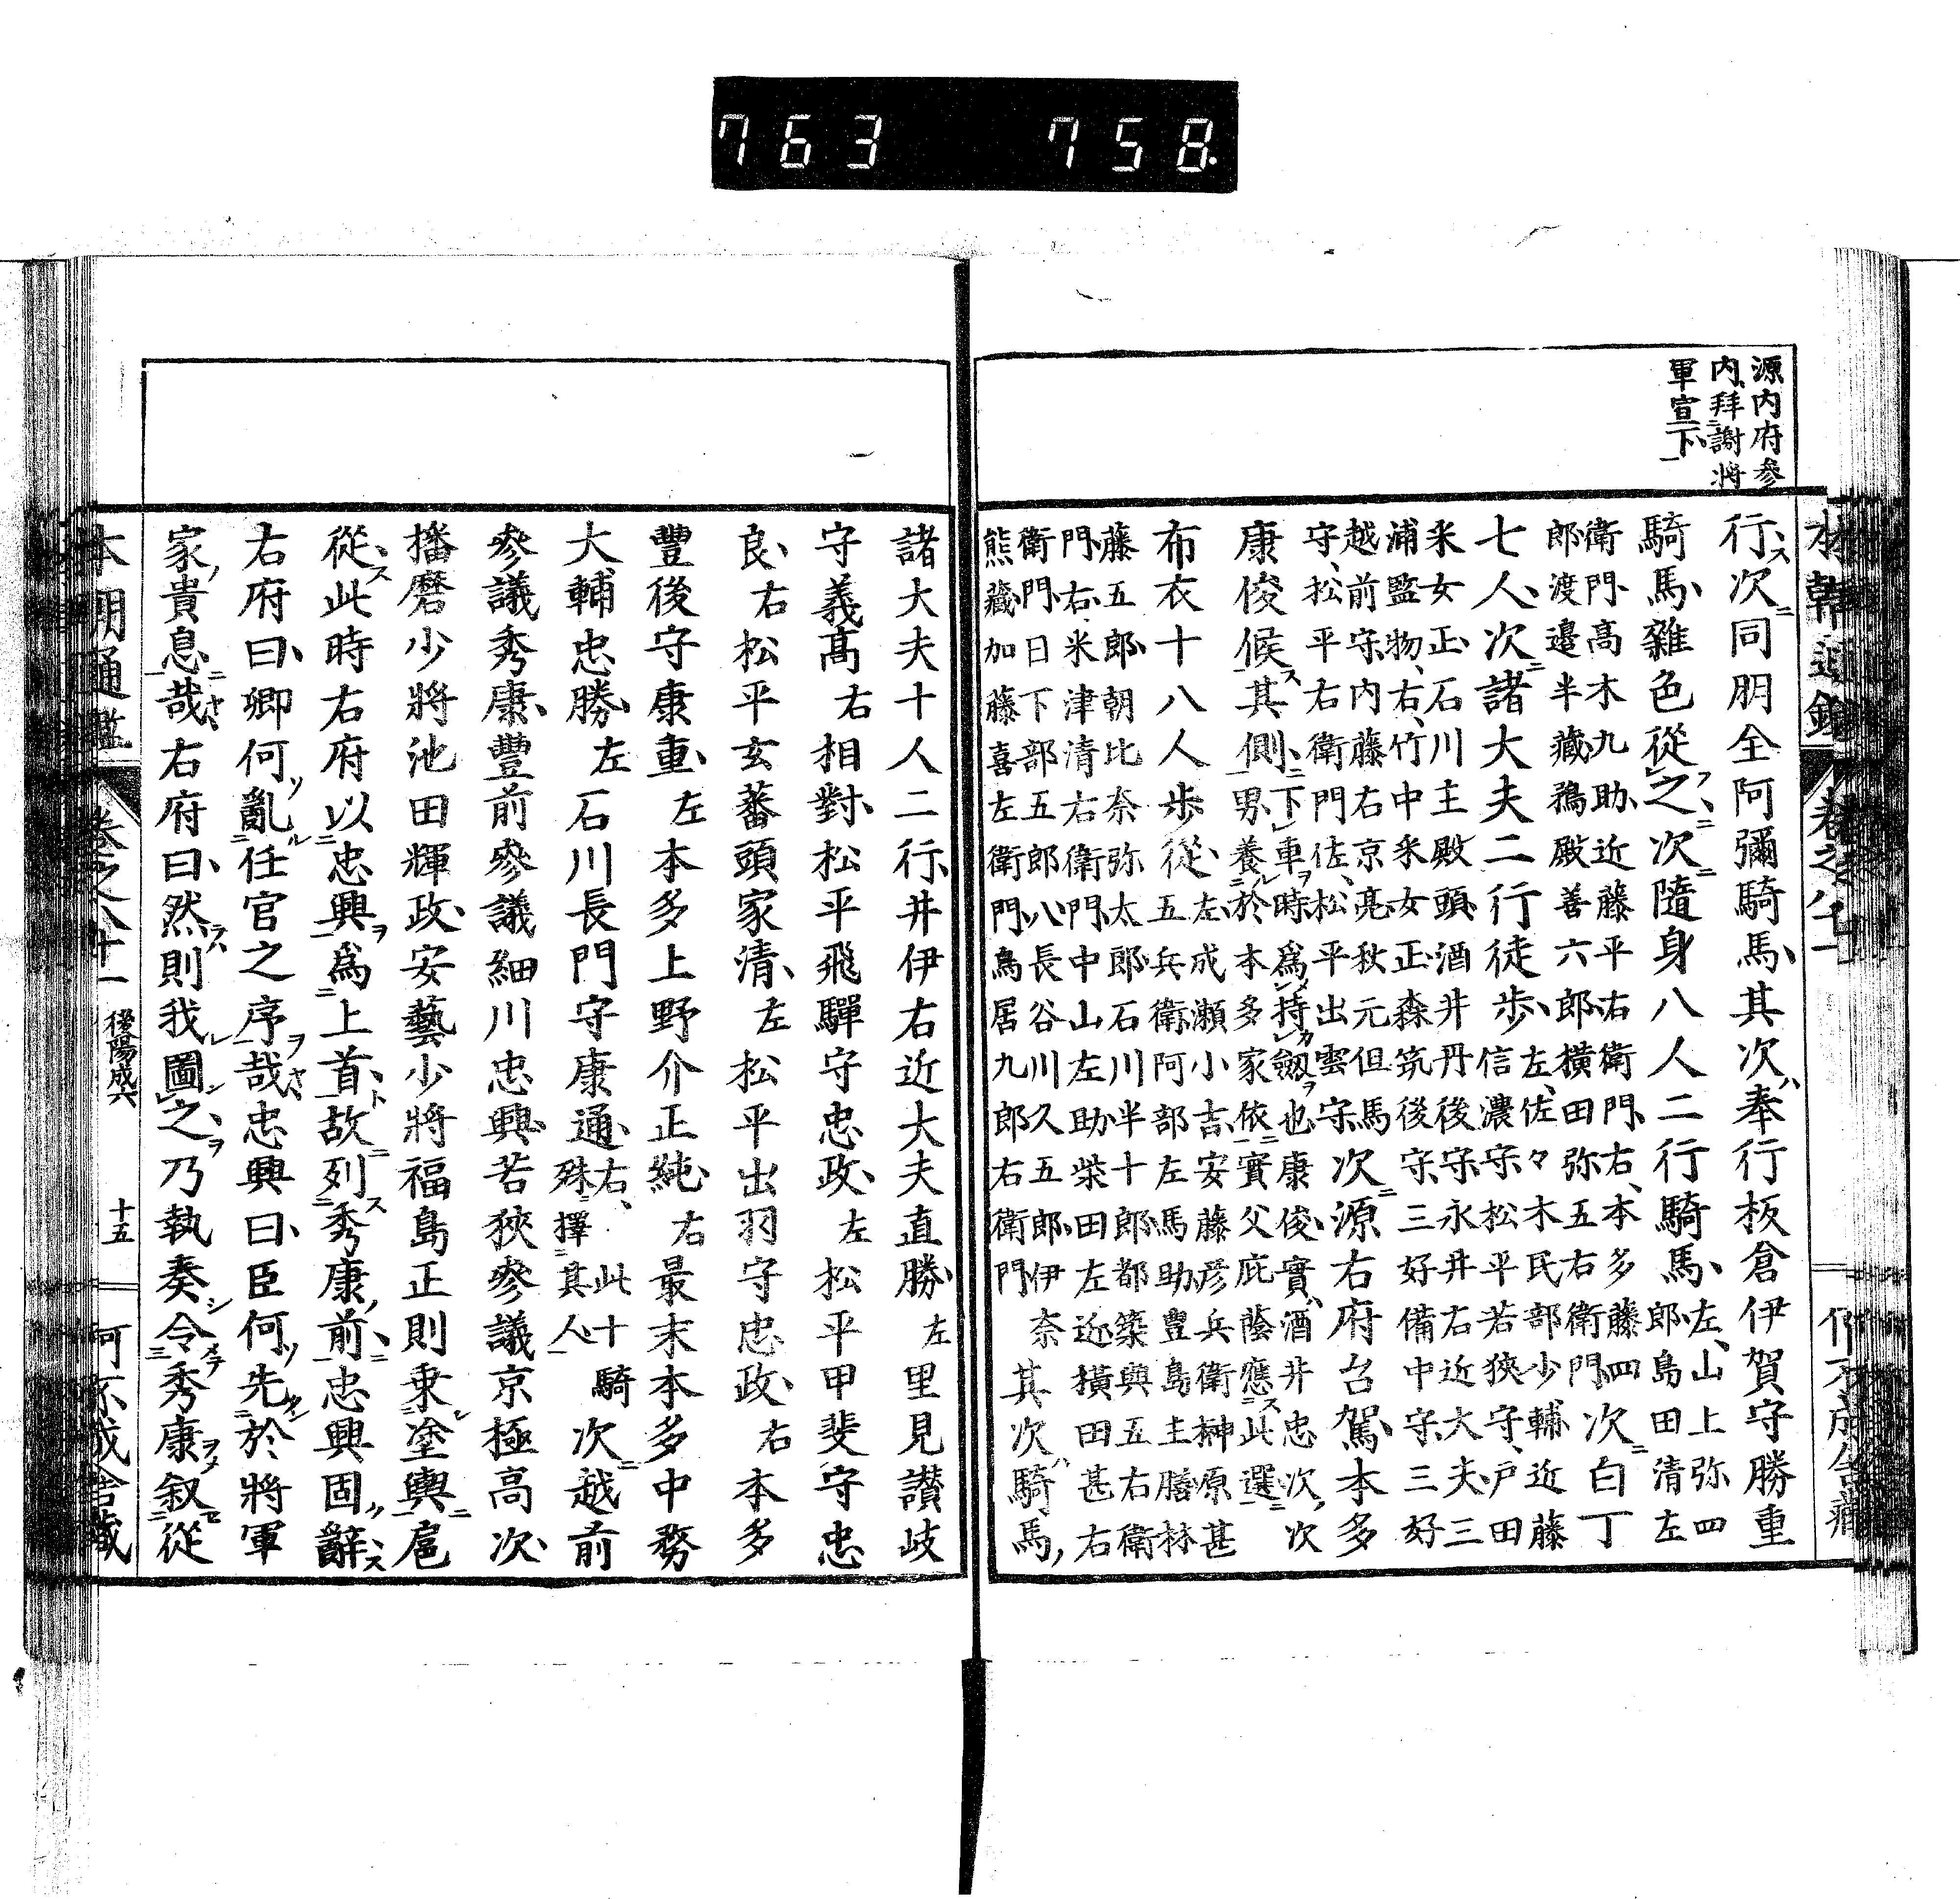 763 758.
源内府參
内拜謝將
軍宣下
行次同朋全阿彌騎馬其次奉行板倉伊賀守勝重
騎馬雜色從之次隨身八人二行騎馬左山上弥四
郎島田清左
衛門高木九助近藤平右衛門右本多藤四
郎渡邉半藏鵜殿善六郎橫田弥五右衛門次白丁
七人次諸大夫二行徒歩左佐々木民部少輔近藤
信濃守松平若狹守戸田
采女正石川主殿頭酒井丹後守永井右近大夫三
浦監物右竹中采女正森筑後守三好備中守三好
越前守内藤右京亮秋元但馬
守松平右衛門佐松平出雲守次源右府召駕本多
康俊候其側下車時爲持劔也康俊實酒井忠次次
男養於本多家依實父庇蔭應此選
布衣十八人歩從左成瀬小吉安藤彦兵衛榊原甚
五兵衛阿部左馬助豊島主膳林
藤五郎朝比奈弥太郎石川半十郎都築與五右衛
門右米津清右衛門中山左助柴田左近橫田甚右
衛門日下部五郎八長谷川久五郎伊奈
熊藏加藤喜左衛門鳥居九郎右衛門
其次騎馬
諸大夫十人二行井伊右近大夫直勝左里見讃岐
守義髙右相對松平飛驒守忠政左松平甲斐守忠
良右松平玄蕃頭家清左松平出羽守忠政右本多
豐後守康重左本多上野介正純右最末本多中務
大輔忠勝左石川長門守康通右此十騎
殊擇其人
次越前
參議秀康豐前參議細川忠興若狹參議京極高次
播磨少將池田輝政安藝少將福島正則乗塗輿扈
從此時右府以忠興爲上首故列秀康前忠興固辭
右府曰卿何亂任官之序哉忠興曰臣何先於將軍
家貴息哉右府曰然則我圖之乃執奏令秀康叙從
本朝通鑑
卷之八十一
後陽成六
十五